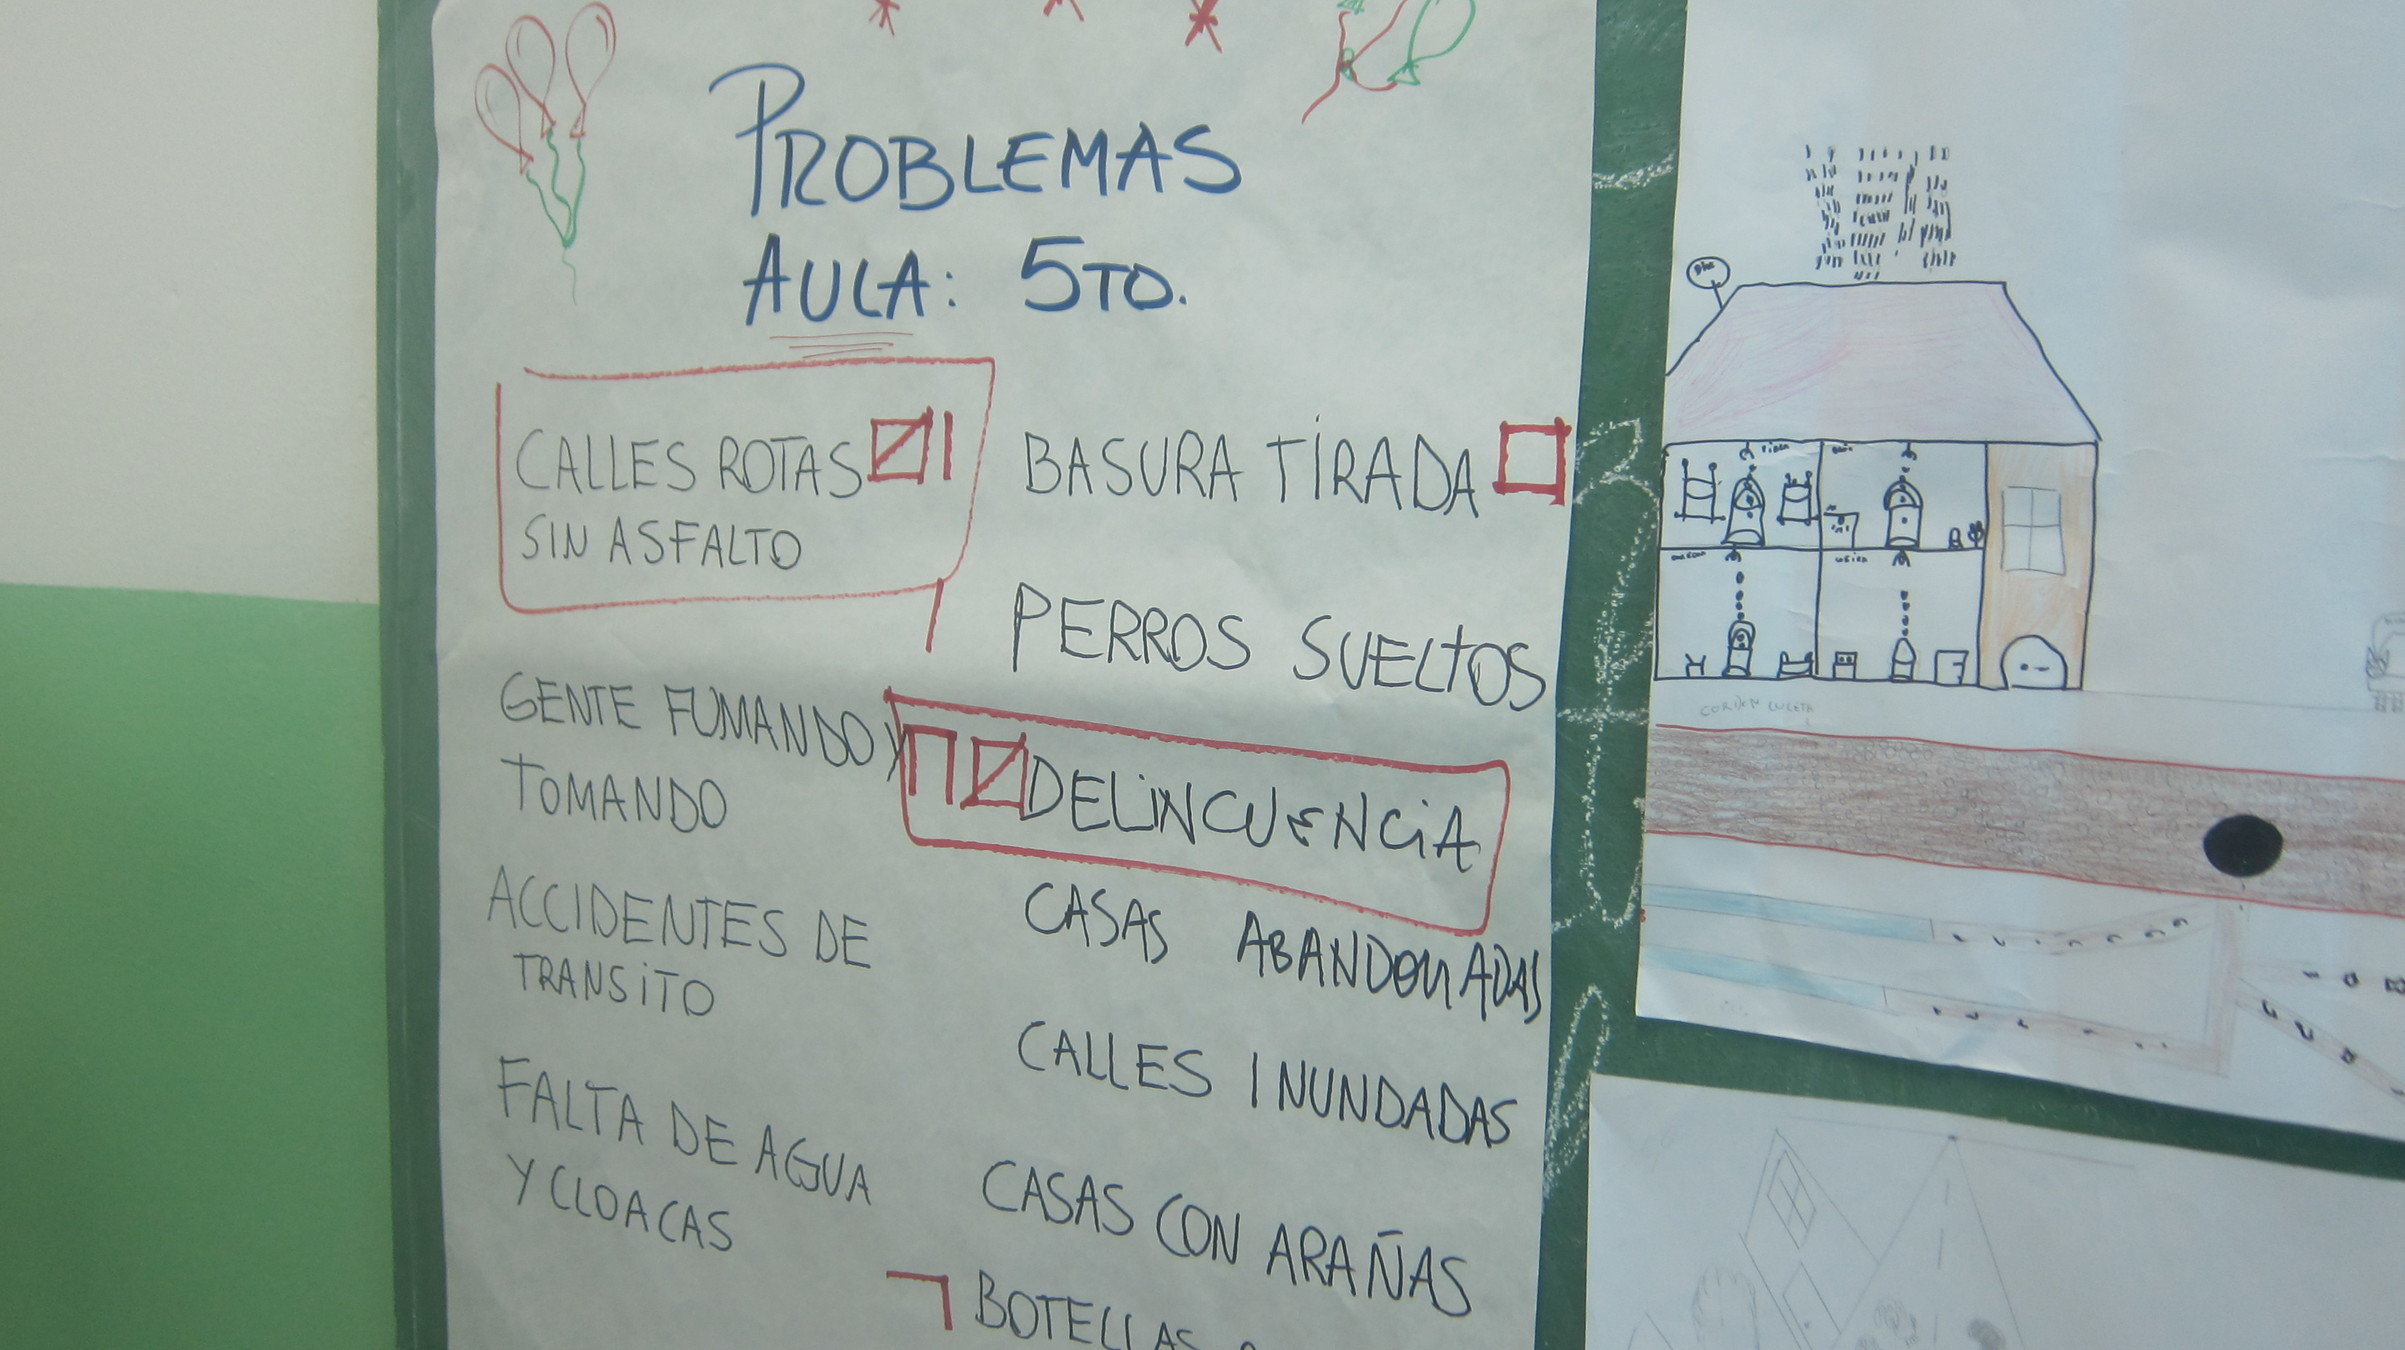 PROBLEMAS
AULA: 5TO.
CALLES ROTAS
SIN ASFALTO
GENTE FUMANDO Y
TOMANDO
ACCIDENTES DE
TRANSITO
FALTA DE AGUA
Y CLOACAS
BASURA TIRADA
PERROS SUELTOS
DELINCUENCIA
CASAS ABANDONADAS
CALLES INUNDADAS
CASAS CON ARAÑAS
BOTELLAS
CORDON CUNETA